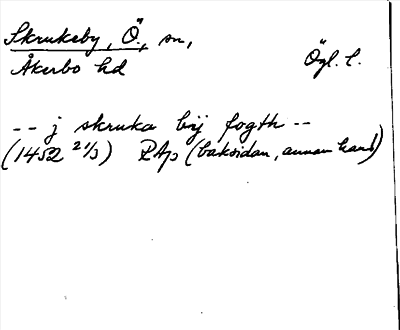 Skrukeby, Ö., sn,
Åkerbo hd Ögl. l.
-- j skruka bij fogth --
(1452 21/3) RAp (baksidan, annan hand)